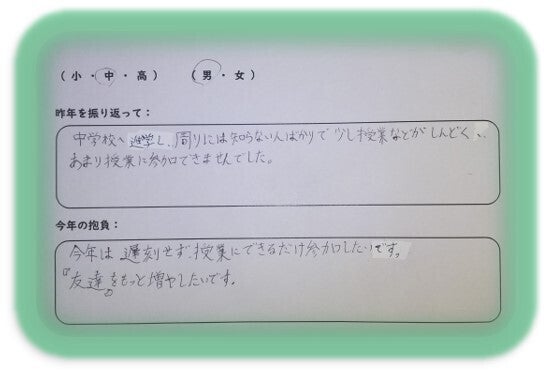 （ 小 ・ 中 ・ 高 ）　（ 男 ・ 女 ）
昨年を振り返って：
中学校へ進学し、周りには知らない人ばかりで少し授業などがしんどく、
あまり授業に参加できませんでした。
今年の抱負：
今年は遅刻せず、授業にできるだけ参加したいです。
『友達』をもっと増やしたいです。